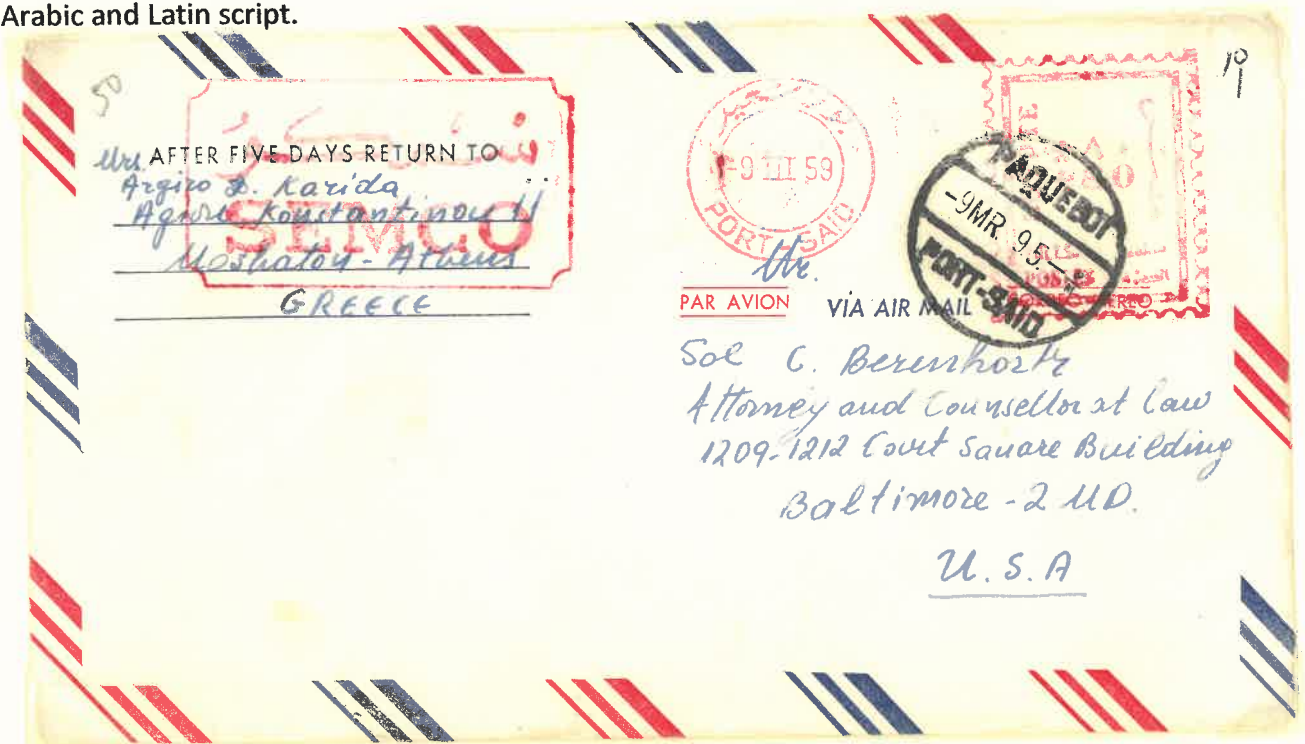 Arabic and Latin script.
50
19
Mrs. AFTER FIVE DAYS RETURN TO
Argiro D. Karida
Agiou Konstantinou 11
SEMCO
Moshaton - Athens
GREECE
-9 III 59
PORT-SAID
PAQUEBOT
-9MR. 95.-
PORT-SAID
POSTES
Mr.
PAR AVION VIA AIR MAIL CORREO AEREO
Sol C. Berenholtz
Attorney and Counsellor at Law
1209-1212 Court Square Building
Baltimore - 2 MD.
U.S.A